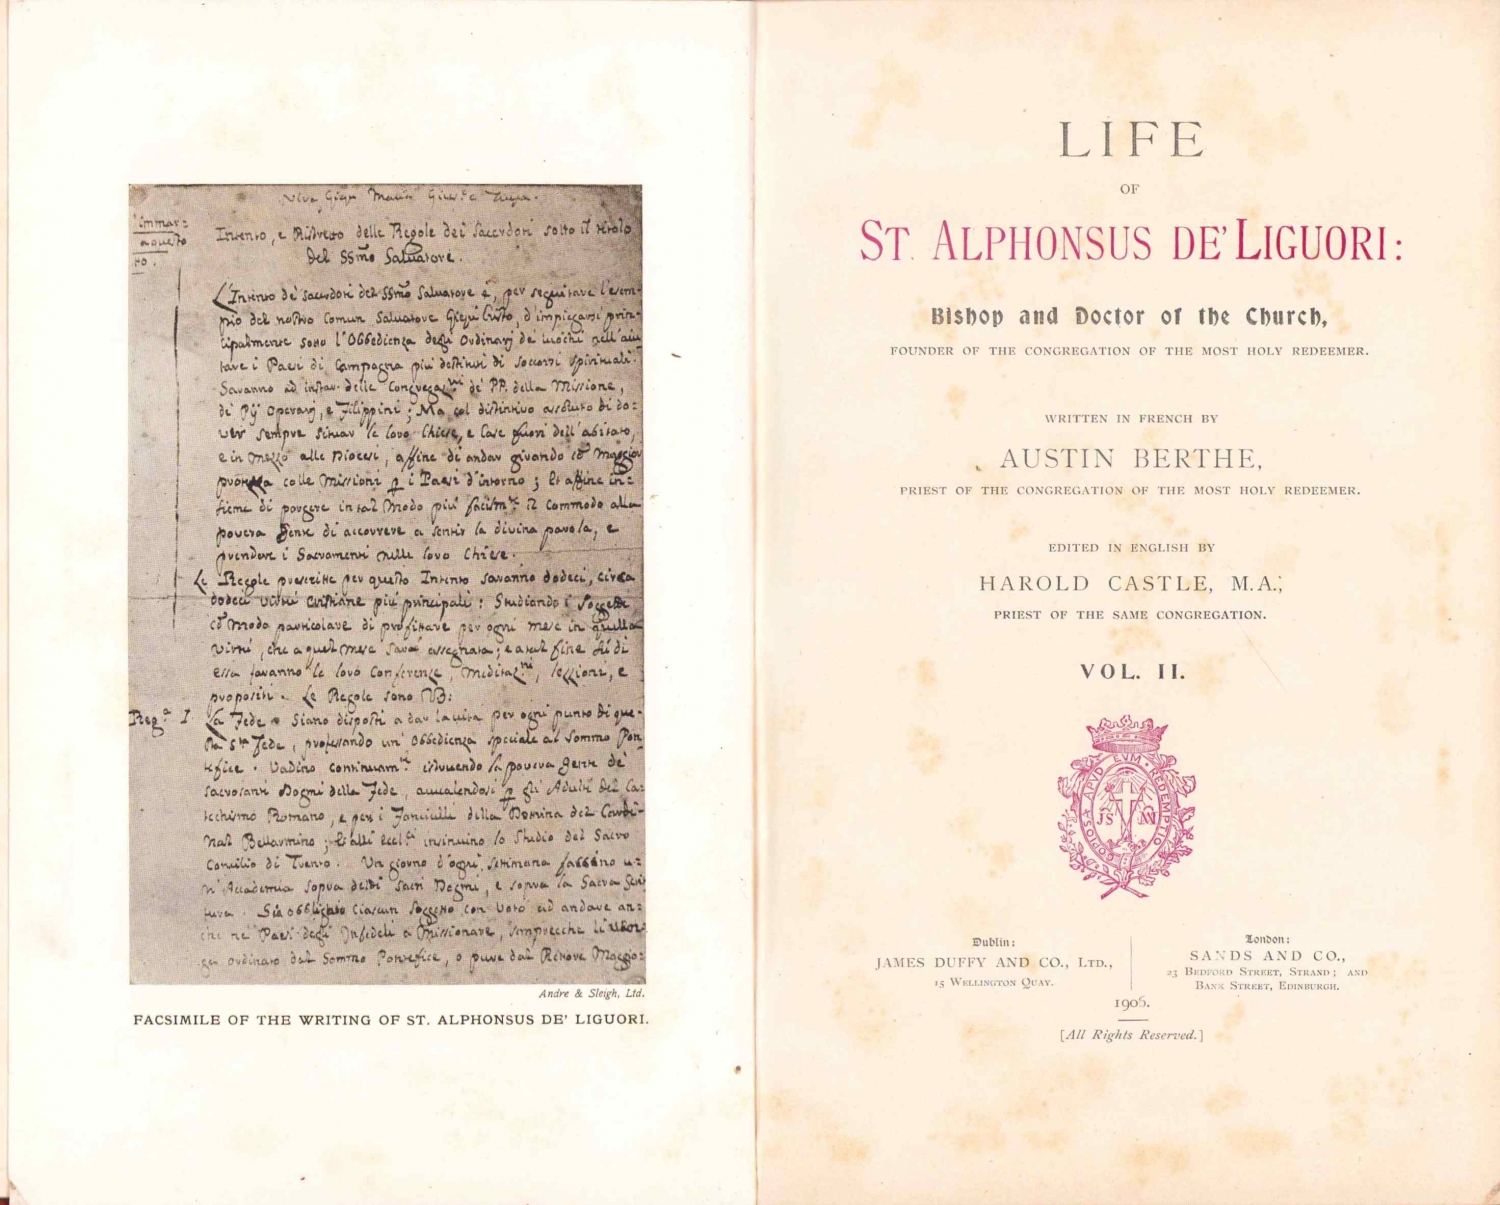 Viva Giesù Maria Giusᵉ e Teresa.
Intento, e Ristretto delle Regole dei Sacerdoti sotto il titolo
del SSmo Salvatore.
L'Intento de' Sacerdoti del SSmo Salvatore è, per seguitare l'esem-
pio del nostro Comun Salvatore Giesù Cristo, d'impiegarsi prin-
cipalmente sotto l'Obbedienza degli Ordinarj de' luochi nell'aiu-
tare i Paesi di Campagna più destituti di soccorsi spirituali.
Saranno ad instar delle Congregaz.ni de' PP. della Missione,
de' Pij Operarj, e Filippini; Ma col distintivo assoluto di do-
ver sempre situar le loro Chiese, e Case fuori dell'abitato,
e in mezzo alle Diocesi, affine di andar girando cō maggior
prontezza colle Missioni p i Paesi d'intorno; Et affine in-
sieme di porgere in tal modo più facilmte il commodo alla
povera gente di accorrere a sentir la divina parola, e
prendere i Sacramenti nelle loro Chiese.
Le Regole prescritte per questo Intento saranno dodeci, circa
dodeci virtù cristiane più principali: Studiando i Soggetti
cō modo particolare di profittare per ogni mese in quella
virtù, che a quel mese sarà assegnata; e a tal fine su di
essa faranno le loro Conferenze, Meditaz.ni, lezzioni, e
propositi. Le Regole sono
Regª I. La Fede. Siano disposti a dar la vita per ogni punto di que-
sta Sta Fede, professando un' Obbedienza speciale al Sommo Pon-
tefice. Vadino continuamte istruendo la povera gente de'
sacrosanti Dogmi della Fede, avvalendosi p gli Adulti del Ca-
techismo Romano, e per i Fanciulli della Dottrina del Cardi-
nal Bellarmino; Et alli Eccl.ci insinuino lo Studio del Sacro
Concilio di Trento. Un giorno d'ogni settimana faranno u-
n' Accademia sopra detti Sacri Dogmi, e sopra la Sacra Scrit
tura. Sia obbligato ciascun Soggetto con Voto ad andare an-
che ne' Paesi degli Infedeli a Missionare, semprecche li
ordinato dal Sommo Pontefice, o pure dal Rettore Maggio-
Andre & Sleigh, Ltd.
FACSIMILE OF THE WRITING OF ST. ALPHONSUS DE' LIGUORI.
LIFE
OF
ST. ALPHONSUS DE' LIGUORI:
Bishop and Doctor of the Church,
FOUNDER OF THE CONGREGATION OF THE MOST HOLY REDEEMER.
WRITTEN IN FRENCH BY
AUSTIN BERTHE,
PRIEST OF THE CONGREGATION OF THE MOST HOLY REDEEMER.
EDITED IN ENGLISH BY
HAROLD CASTLE, M.A.,
PRIEST OF THE SAME CONGREGATION.
VOL. II.
COPIOSA APUD EUM REDEMPTIO
Dublin:
JAMES DUFFY AND CO., LTD.,
15 WELLINGTON QUAY.
London:
SANDS AND CO.,
23 BEDFORD STREET, STRAND; AND
BANK STREET, EDINBURGH.
1906.
[All Rights Reserved.]